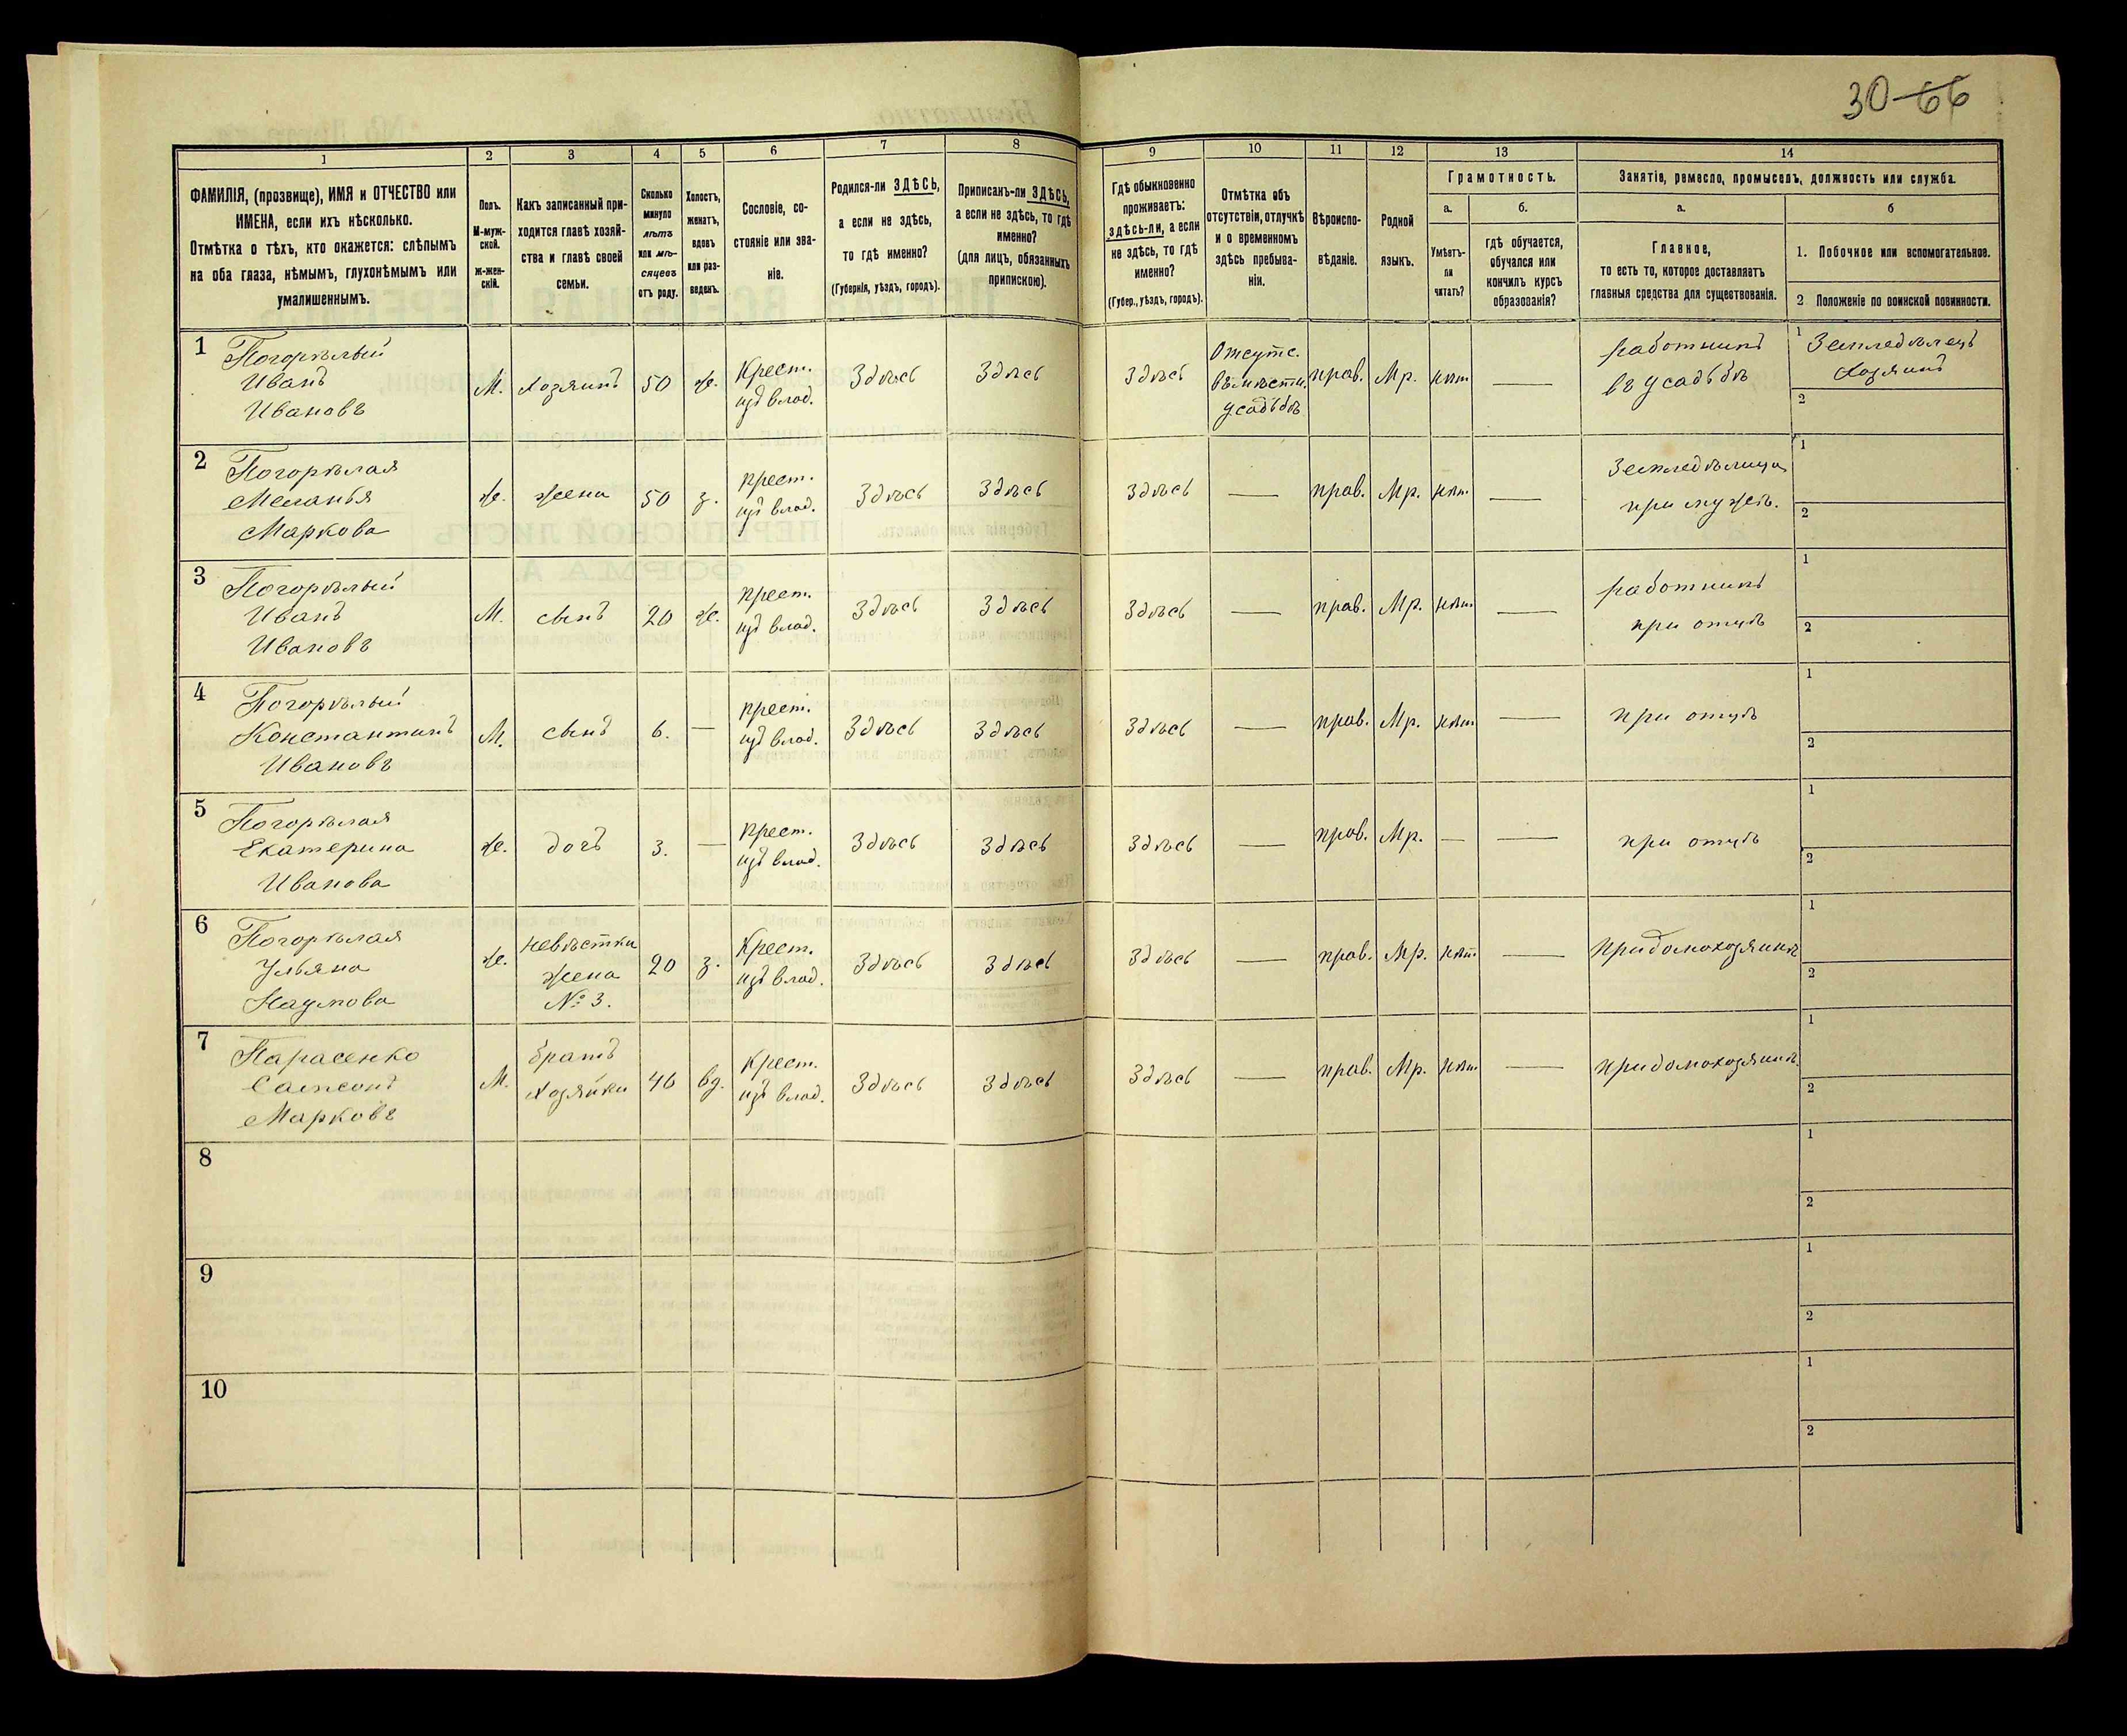 30-66
1
2
3
4
5
6
7
8
9
10
11
12
13
14
ФАМИЛІЯ, (прозвище), ИМЯ и ОТЧЕСТВО или
ИМЕНА, если ихъ нѣсколько.
Отмѣтка о тѣхъ, кто окажется: слѣпымъ
на оба глаза, нѣмымъ, глухонѣмымъ или
умалишеннымъ.
Полъ.
М-муж-
ской.
ж-жен-
скій.
Какъ записанный при-
ходится главѣ хозяй-
ства и главѣ своей
семьи.
Сколько
минуло
лѣтъ
или мѣ-
сяцевъ
отъ роду.
Холостъ,
женатъ,
вдовъ
или раз-
веденъ.
Сословіе, со-
стояніе или зва-
ніе.
Родился-ли ЗДѢСЬ,
а если не здѣсь,
то гдѣ именно?
(Губернія, уѣздъ, городъ).
Приписанъ-ли ЗДѢСЬ,
а если не здѣсь, то гдѣ
именно?
(для лицъ, обязанныхъ
припискою).
Гдѣ обыкновенно
проживаетъ:
здѣсь-ли, а если
не здѣсь, то гдѣ
именно?
(Губер., уѣздъ, городъ).
Отмѣтка объ
отсутствіи, отлучкѣ
и о временномъ
здѣсь пребыва-
ніи.
Вѣроиспо-
вѣданіе.
Родной
языкъ.
Грамотность.
а.
Умѣетъ-
ли
читать?
б.
гдѣ обучается,
обучался или
кончилъ курсъ
образованія?
Занятіе, ремесло, промыселъ, должность или служба.
а.
Главное,
то есть то, которое доставляетъ
главныя средства для существованія.
б
1. Побочное или вспомогательное.
2 Положеніе по воинской повинности.
1
Погорѣлый
Иванъ
Ивановъ
М.
хозяинъ
50
ж.
Крест.
изъ влад.
Здѣсь
Здѣсь
Здѣсь
Отсутс.
въ мѣстн.
усадьбѣ
прав.
Мр.
нѣт
—
работникъ
въ усадьбѣ
1
Земледѣлецъ
хозяинъ
2
2
Погорѣлая
Меланья
Маркова
ж.
жена
50
з.
крест.
изъ влад.
Здѣсь
Здѣсь
Здѣсь
—
прав.
Мр.
нѣт.
—
Земледѣлица
при мужѣ.
1
2
3
Погорѣлый
Иванъ
Ивановъ
М.
сынъ
20
ж.
крест.
изъ влад.
Здѣсь
Здѣсь
Здѣсь
—
прав.
Мр.
нѣт.
—
работникъ
при отцѣ
1
2
4
Погорѣлый
Константинъ
Ивановъ
М.
сынъ
6.
—
крест.
изъ влад.
Здѣсь
Здѣсь
Здѣсь
—
прав.
Мр.
нѣт.
—
при отцѣ
1
2
5
Погорѣлая
Екатерина
Иванова
ж.
дочь
3.
—
крест.
изъ влад.
Здѣсь
Здѣсь
Здѣсь
—
прав.
Мр.
—
—
при отцѣ
1
2
6
Погорѣлая
Ульяна
Наумова
ж.
невѣстка
жена
№ 3.
20
з.
Крест.
изъ влад.
Здѣсь
Здѣсь
Здѣсь
—
прав.
Мр.
нѣт.
—
придомохозяинѣ
1
2
7
Парасенко
Самсонъ
Марковъ
М.
братъ
хозяйки
46
вд.
Крест.
изъ влад.
Здѣсь
Здѣсь
Здѣсь
—
прав.
Мр.
нѣт.
—
придомохозяинѣ.
1
2
8
1
2
9
1
2
10
1
2